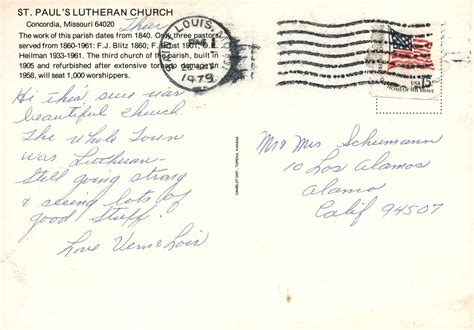 ST. PAUL'S LUTHERAN CHURCH
Concordia, Missouri 64020
The work of this parish dates from 1840. Only three pastors
served from 1860-1961: F.J. Biltz 1860; F. 1901; O.
Heilman 1933-1961. The third church of the parish, built in
1905 and refurbished after extensive tornado damage in
1958, will seat 1,000 worshippers.
Hi this sure was
beautiful church.
The whole Town
was Lutheran-
Still going strong
& seeing lots of
good Stuff.
Love Vern & Lois
LOUIS
PM
1979
USA 15c
Mr & Mrs Schumann
10 Los Alamos
Alamo
Calif 94507